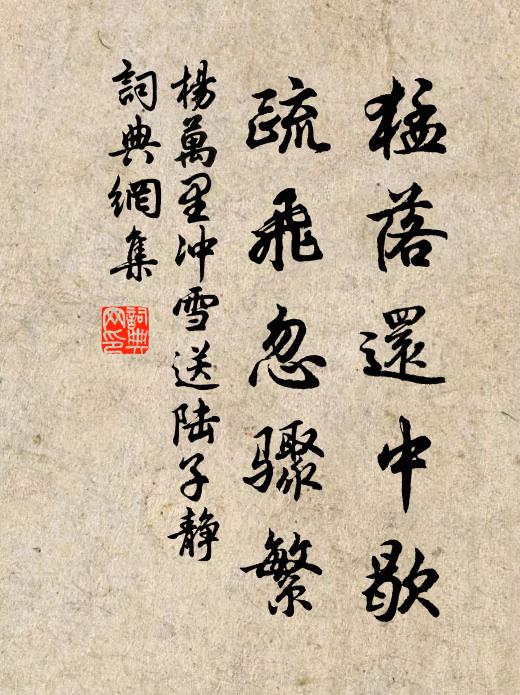 猛落還中歇
疏飛忽驟繁
楊萬里冲雪送陆子静
詞典網集
詞典网印